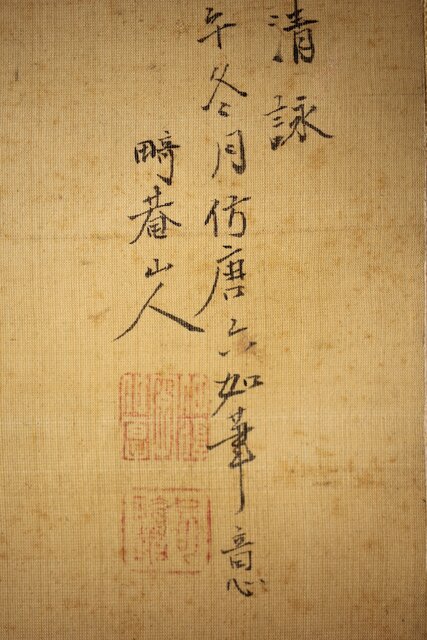 清詠
午冬月仿唐六如筆意
畸菴山人